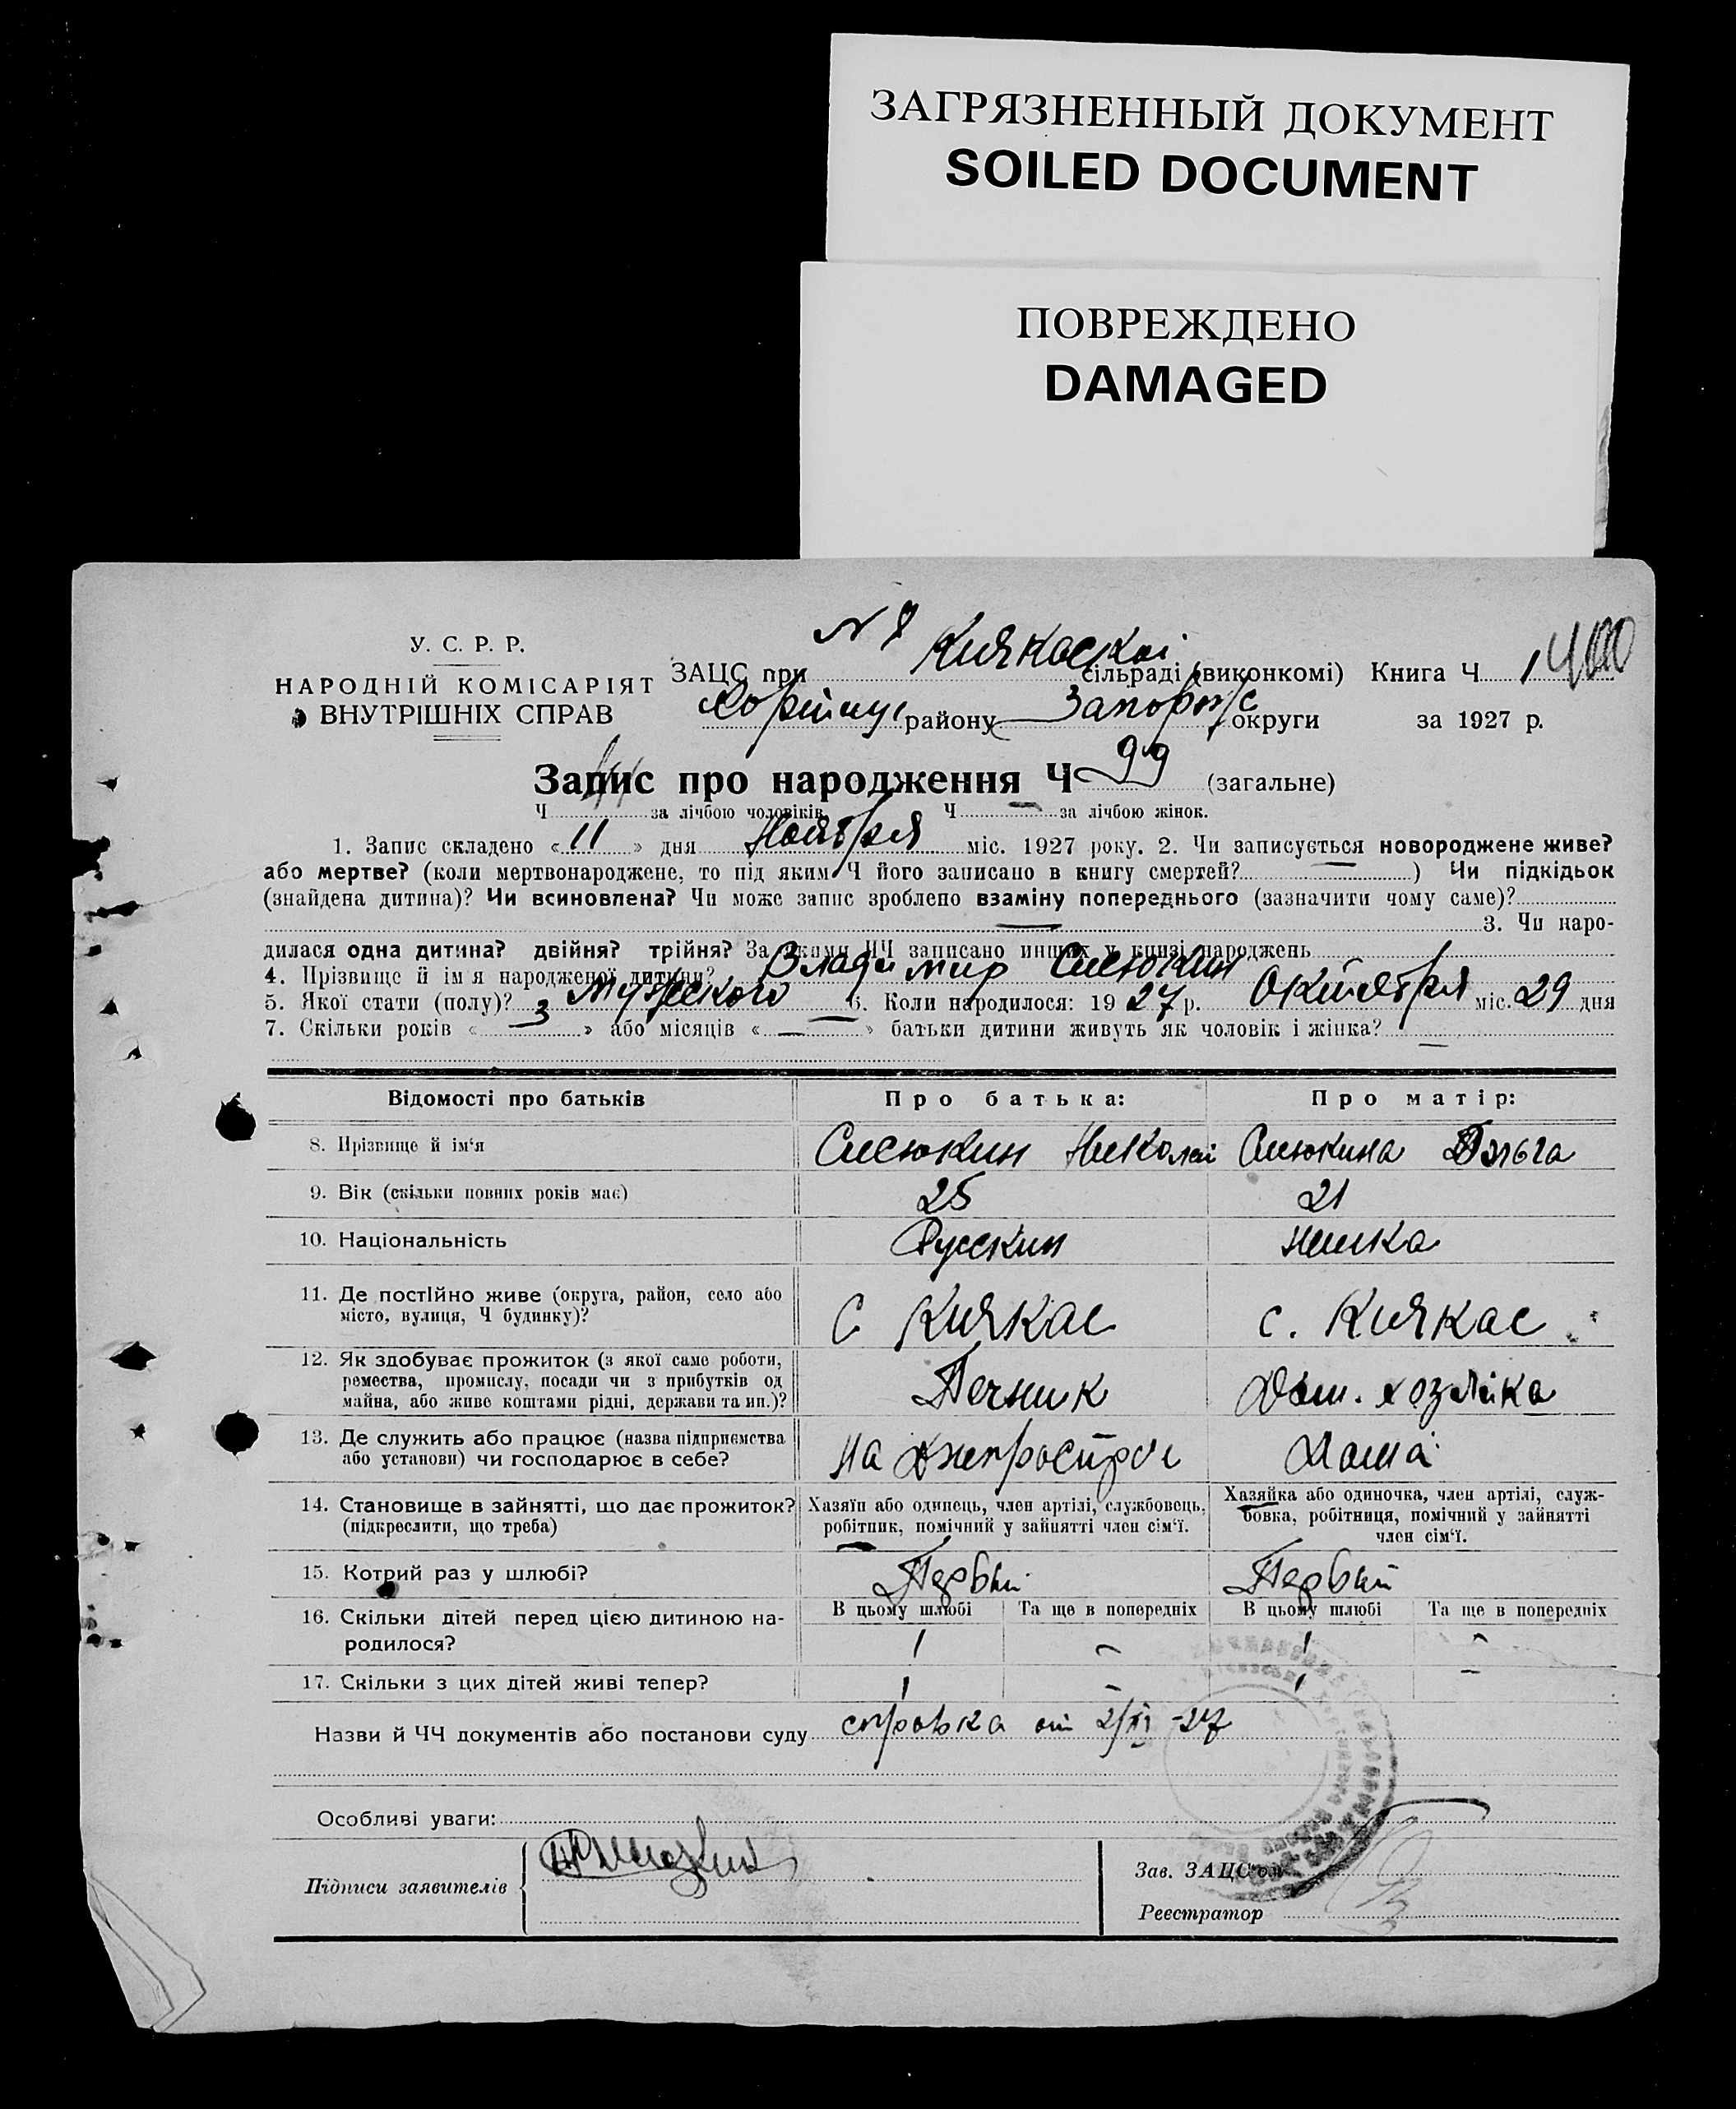 ЗАГРЯЗНЕННЫЙ ДОКУМЕНТ
SOILED DOCUMENT
ПОВРЕЖДЕНО
DAMAGED
У. С. Р. Р.
НАРОДНІЙ КОМІСАРІЯТ
ВНУТРІШНІХ СПРАВ
ЗАЦС при Кичкаской сільраді (виконкомі) Книга Ч. 1
району Запорож округи за 1927 р.
Запис про народження Ч 99 (загальне)
Ч за лічбою чоловіків Ч — за лічбою жінок.
1. Запис складено « 11 » дня Ноября міс. 1927 року. 2. Чи записується новороджене живе?
або мертве? (коли мертвонароджене, то під яким Ч його записано в книгу смертей? — ) Чи підкідьок
(знайдена дитина)? Чи всиновлена? Чи може запис зроблено взаміну попереднього (зазначити чому саме)?
— 3. Чи наро-
дилася одна дитина? двійня? трійня? За якими ЧЧ записано инших у книзі народжень
4. Прізвище й ім я народженої дитини? Владимир Сисюкин
5. Якої стати (полу)? Мужеского 6. Коли народилося: 19 27 р. Октября міс. 29 дня
7. Скільки років « 3 » або місяців « — » батьки дитини живуть як чоловік і жінка? —
Відомості про батьків Про батька: Про матір:
8. Прізвище й ім‘я Сисюкин Николай Сисюкина Ольга
9. Вік (скільки повних років має) 25 21
10. Національність Русский Немка
11. Де постійно живе (округа, район, село або
місто, вулиця, Ч будинку)? С Кичкас с. Кичкас
12. Як здобуває прожиток (з якої саме роботи,
ремества, промислу, посади чи з прибутків од
майна, або живе коштами рідні, держави та ин.)? Печник Дом. хозяйка
13. Де служить або працює (назва підприємства
або установи) чи господарює в себе? На Днепрострое Дома
14. Становище в зайнятті, що дає прожиток?
(підкреслити, що треба)
Хазяїн або одинець, член артілі, службовець,
робітник, помічний у зайнятті член сім‘ї.
Хазяйка або одиночка, член артілі, служ-
бовка, робітниця, помічний у зайнятті
член сім‘ї.
15. Котрий раз у шлюбі? Первый Первый
16. Скільки дітей перед цією дитиною на-
родилося?
В цьому шлюбі Та ще в попередніх В цьому шлюбі Та ще в попередніх
1 – 1 –
17. Скільки з цих дітей живі тепер? 1 – 1 –
Назви й ЧЧ документів або постанови суду справка от 2/XI -27
Особливі уваги:
Підписи заявителів
Зав. ЗАЦС‘ом
Реєстратор